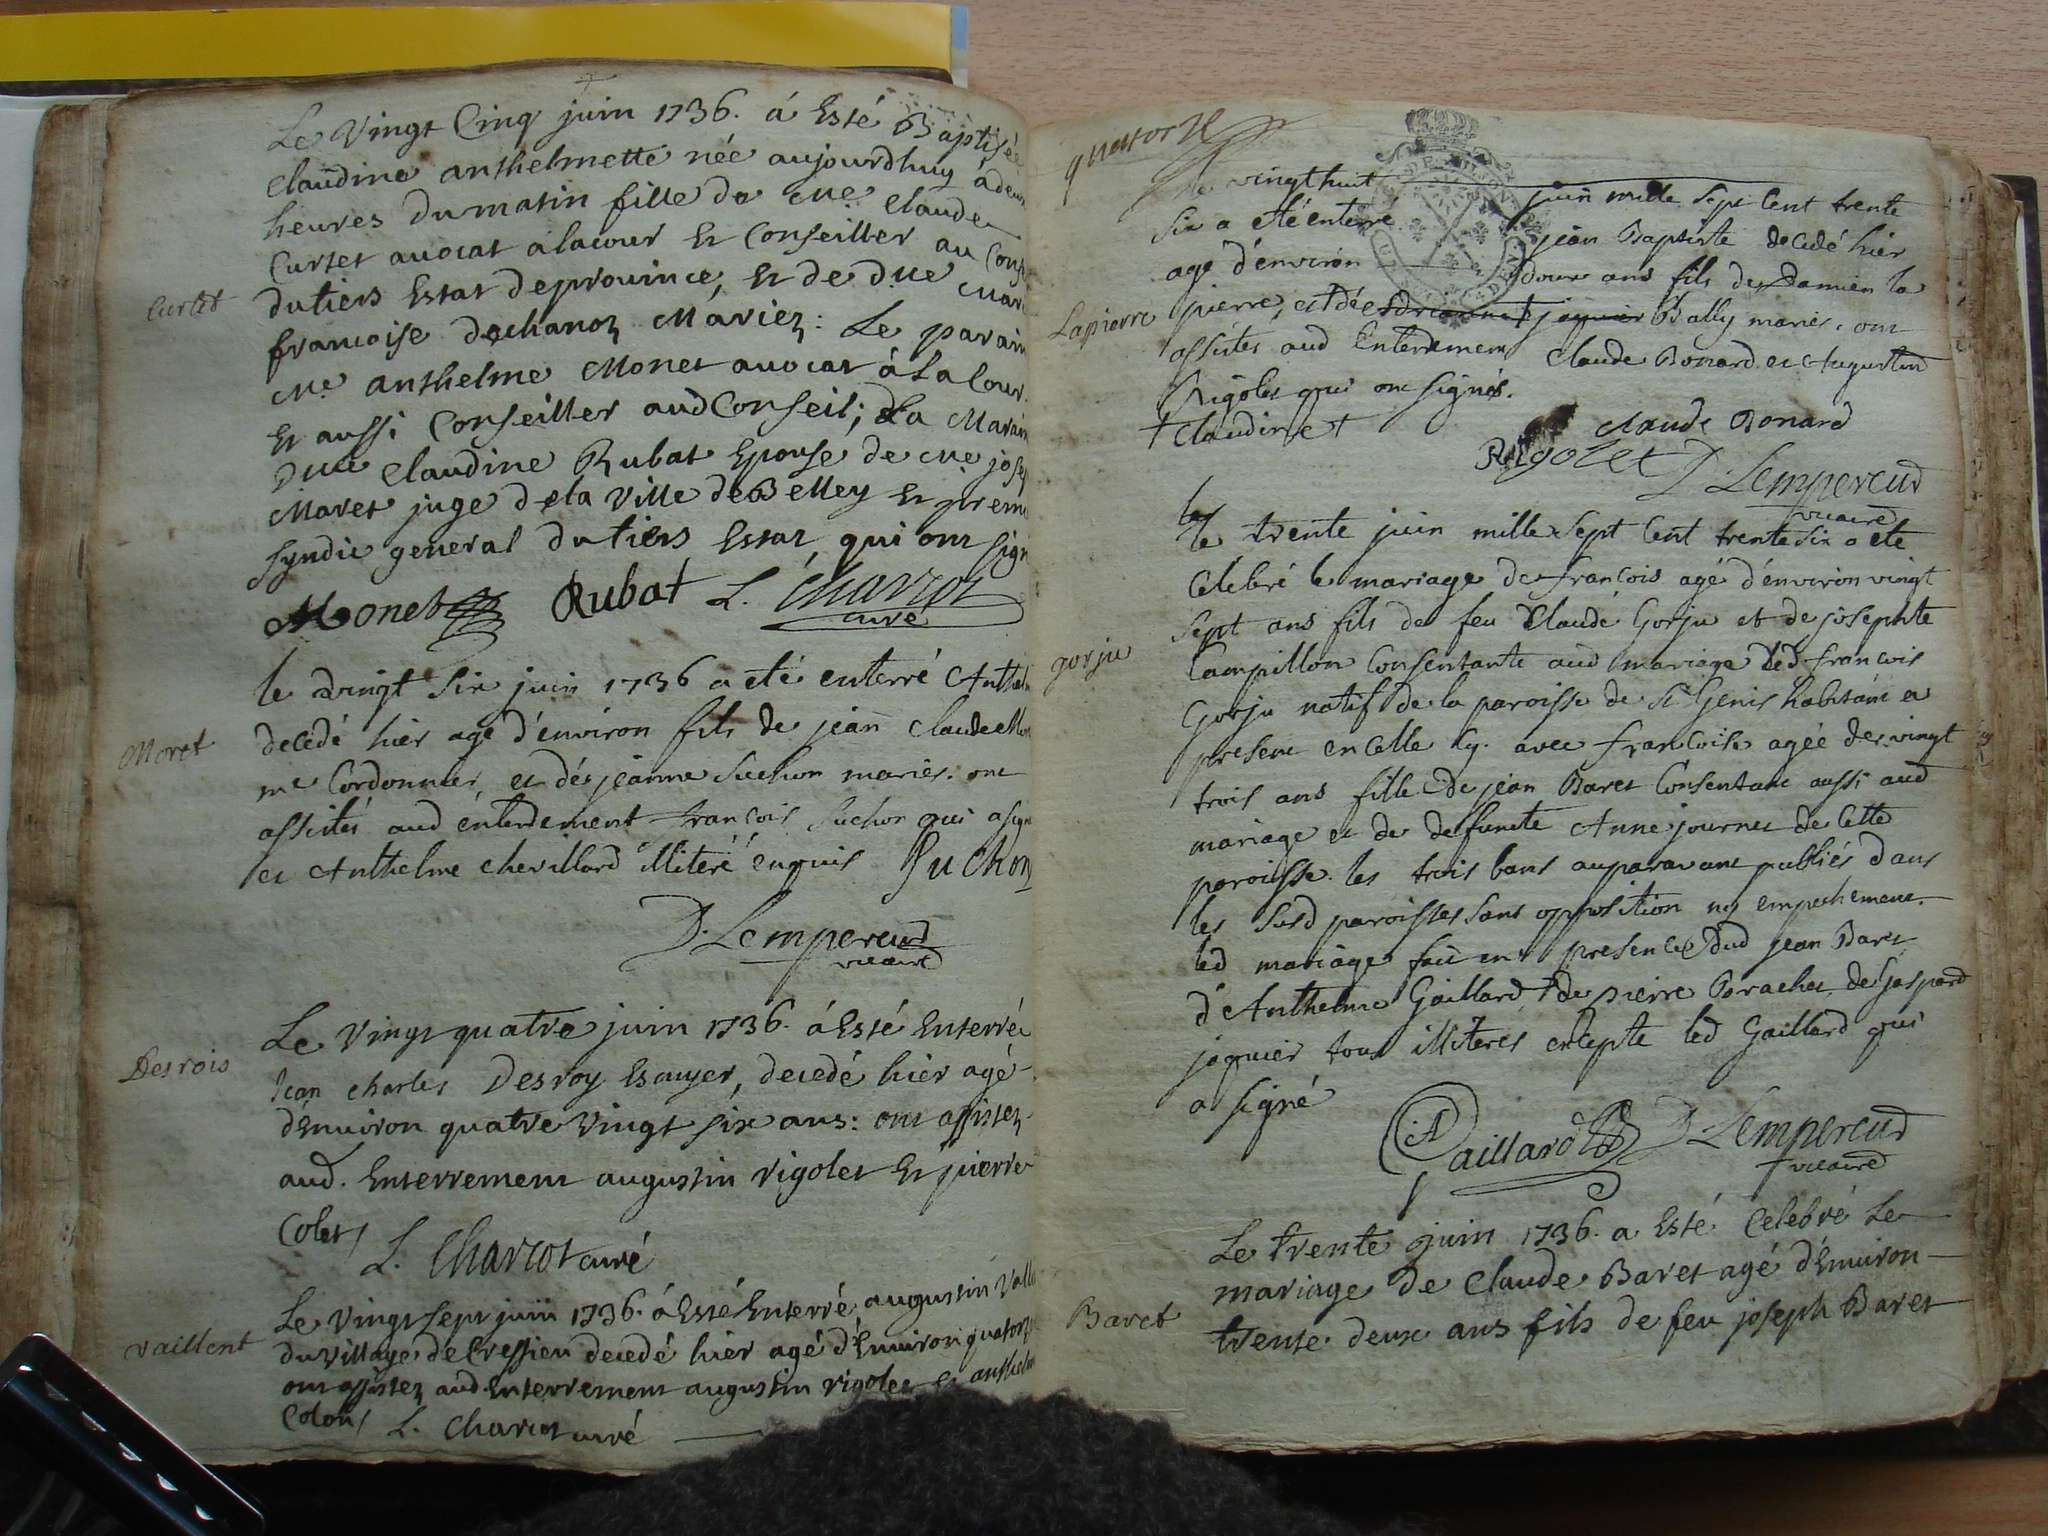 Le Vingt Cinq juin 1736. á Esté Baptisée
Claudine anthelmette née aujourdhuy á deux
heures du matin fille de Me. Claude
Curtet avocat alacour Et Conseiller au Cons
du tiers Estat de province, Et de Dlle Mar
Curtet
francoise dechanoz Mariez: Le parain
Me. anthelme Monet avocat á La Cour.
Et aussi Conseiller aud Conseil; La Marain
Dlle Claudine Rubat Epouse de Me josep
Maret juge dela Ville de Belley Et prem
syndic general du tiers Estat, qui ont sign
Monet Rubat L. Charcot
curé
le vingt six juin 1736 a eté enterré Anthel
decedé hier agé d'énviron fils de jean Claude Mor
Moret
me Cordonnier, et dés jeanne Suchon mariés. ont
assistés aud énterrement francois Suchon qui a sign
et Anthelme Chevillard illiteré enquis Suchon
D. Lempereud
vicaire
Le Vingt quatre juin 1736. á Esté Enterré
Desrois
Jean Charles Desroy Esauyer, decedé hier agé
d'énuiron quatre Vingt six ans: ont assistez
aud. Enterrement augustin rigolet Et pierre
Colet
L. Charcot curé
Le Vingt sept juin 1736. á Esté Enterré augustin Valla
Vaillent
du Village de Cressieu decedé hier agé d'Enuiron quatorze
ont assistez aud Enterrement augustin rigolet Et anthelm
Colon L. Charcot curé
quatorze
le vingthuit juin mille sept Cent trente
six a eté enterré jean Baptiste decedé hier
agé d'énviron douze ans fils de Damien la
Lapierre
pierre, et dé + joquier Bally mariés. ont
assistes aud Enterrement Claude Bonard et Augustin
Rigolet qui ont signés.
+ Claudine +
Claude Bonard
Rigolet D. Lempereud
vicaire
le trente juin mille sept Cent trente six a eté
Celebré le mariage de francois agé d'énviron vingt
sept ans fils de feu Claude Gorju et de josephte
gorju
Campillon Consentante aud mariage led francois
Gorju natif de la paroisse de St Genis habitant a
present en Celle Cy. avec francoise agée de vingt
trois ans fille de jean Baret Consentant aussi aud
mariage et de defuncte Anne journet de Cette
paroisse. les trois bans auparavant publiés dans
les susd paroisses sans opposition ny empechement.
led mariage fait en presence dud jean Baret
d'Anthelme Gaillard de pierre Brachet de Gaspard
joquier tous illiteres excepte led Gaillard qui
a signé
Gaillard D. Lempereud
vicaire
Le trente juin 1736. a Esté Celebré Le
mariage de Claude Baret agé d'Enuiron
Baret
trente deux ans fils de feu joseph Baret